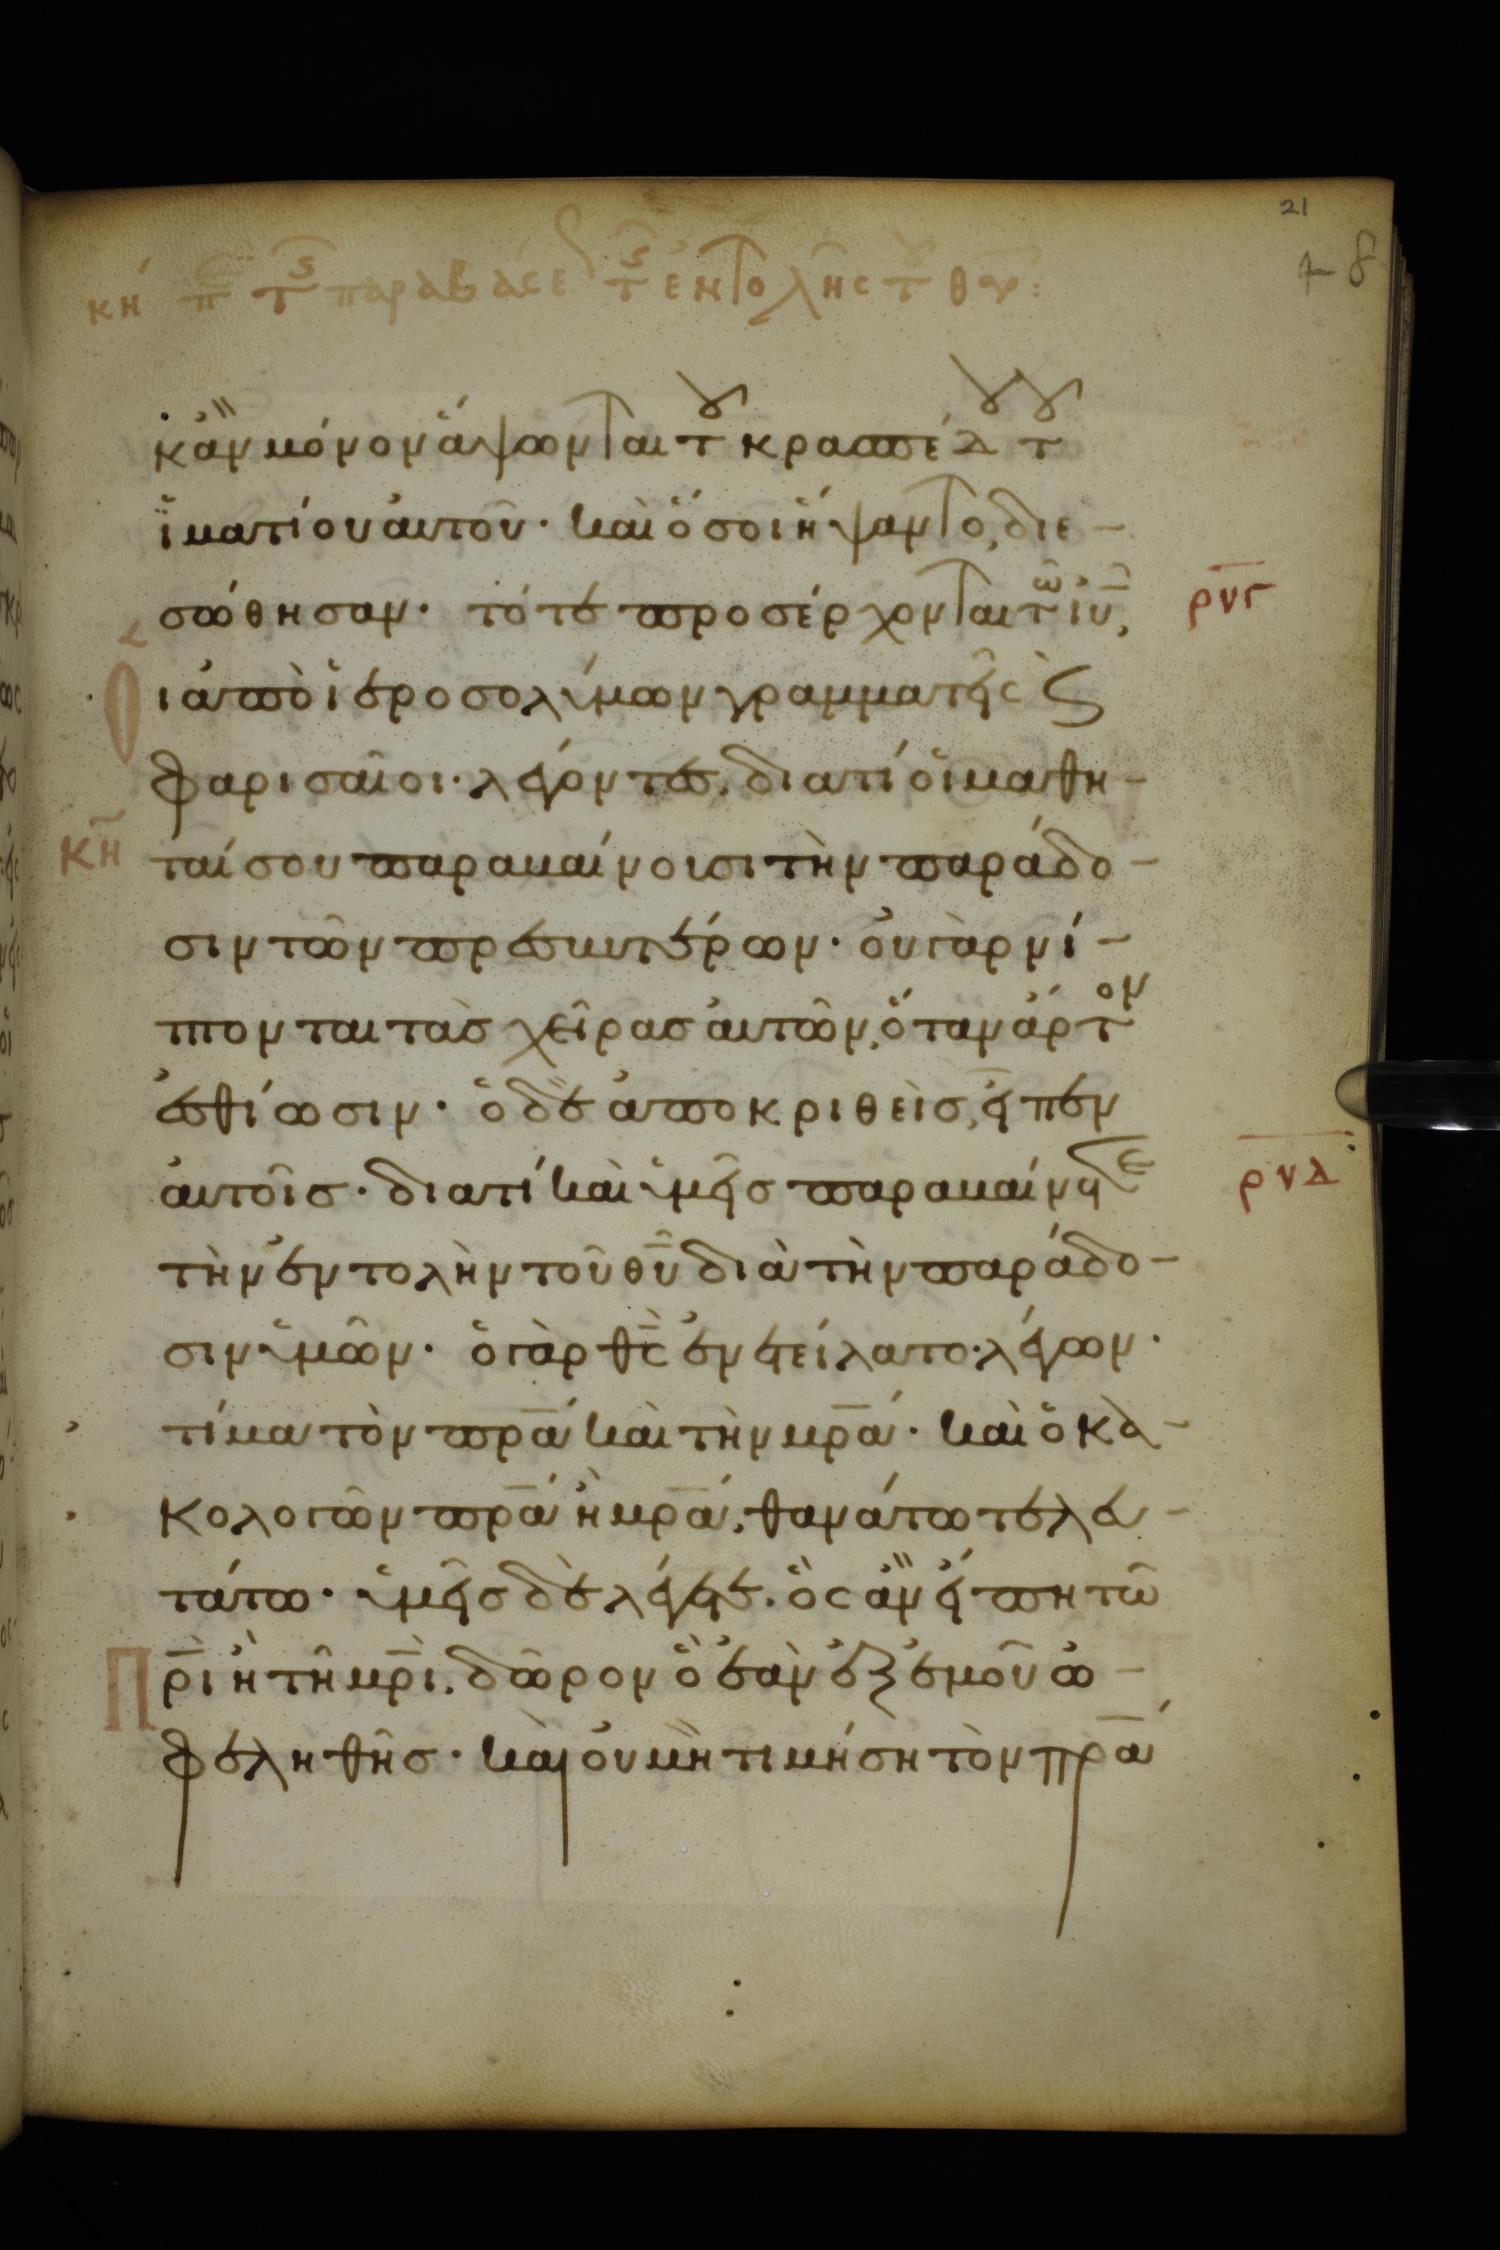 21
48
κη π τ παραβάσε τ ἐντολῆς τ θυ:
κἂν μόνον ἅψωνται τ κρασπέδ τ
ἱματίου αὐτοῦ· καὶ ὅσοι ἥψαντο, διε-
σώθησαν· τότε προσέρχονται τῶ ἰυ,
ρνγ
Οι ἀπὸ ἱεροσολύμων γραμματεῖς ϗ
φαρισαῖοι· λέγοντες. διατί οἱ μαθη-
κη
ταί σου παραβαίνουσι τὴν παράδο-
σιν τῶν πρεσβυτέρων· οὐ γὰρ νί-
πτονται τὰς χεῖρας αὐτῶν, ὅταν ἄρτον
ἐσθίωσιν· ὁ δὲ ἀποκριθεὶς, εἶπεν
αὐτοῖς· διατί καὶ ὑμεῖς παραβαίνετε
ρνδ
τὴν ἐντολὴν τοῦ θυ διὰ τὴν παράδο-
σιν ὑμῶν· ὁ γὰρ θς ἐνετείλατο· λέγων·
τίμα τὸν πρα καὶ τὴν μρα· καὶ ὁ κα-
κολογῶν πρα ἢ μρα, θανάτω τελευ-
τάτω· ὑμεῖς δὲ λέγετε. ὃς ἂν εἴπη τῶ
Πρι ἢ τῆ μρι. δῶρον ὃ ἐὰν ἐξ ἐμοῦ ὠ-
φεληθῆς· καὶ οὐ μὴ τιμήση τὸν πρα